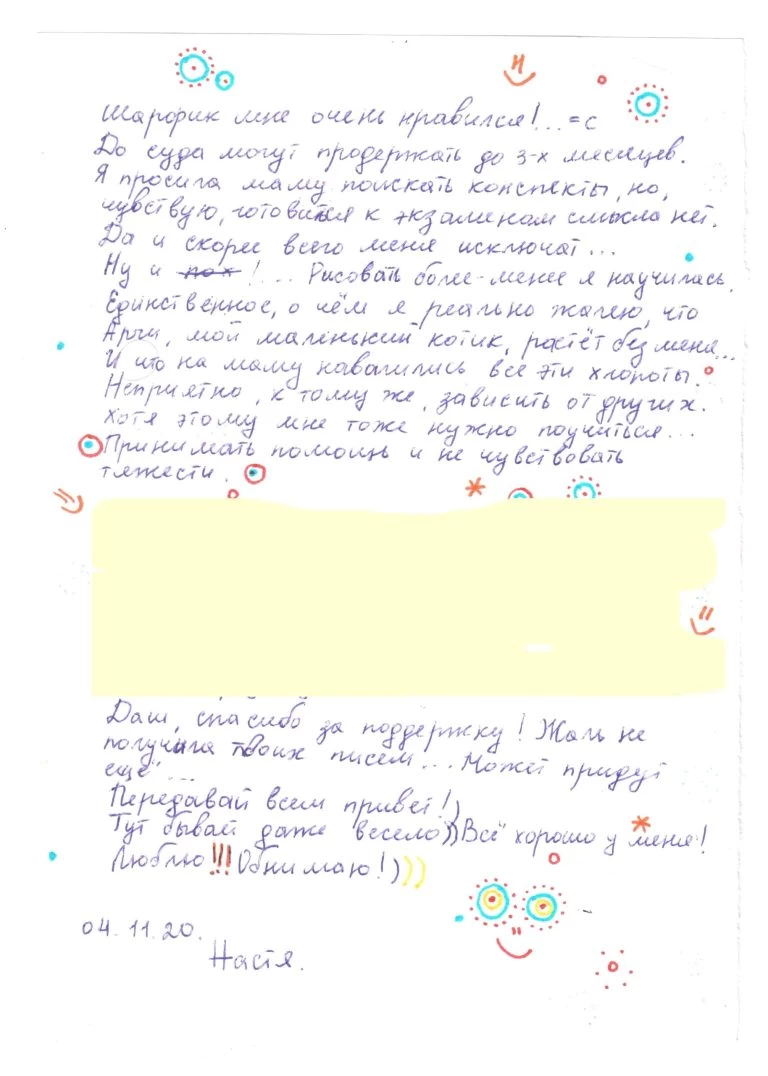 Шарфик мне очень нравился!...=с
До суда могут продержать до 3-х месяцев.
Я просила маму поискать конспекты, но,
чувствую, готовится к экзаменам смысла нет.
Да и скорее всего меня исключат...
Ну и пох!... Рисовать более-менее я научилась.
Единственное, о чём я реально жалею, что
Арчи, мой маленький котик, растёт без меня...
И что на маму навалились все эти хлопоты.
Неприятно, к тому же, зависить от других.
Хотя этому мне тоже нужно поучиться...
Принимать помощь и не чувствовать
тяжести.
Даш, спасибо за поддержку! Жаль не
получила твоих писем... Может придут
ещё...
Передавай всем привет!)
Тут бывает даже весело))Всё хорошо у меня!
Люблю!!! Обнимаю!)))
04.11.20.
Настя.